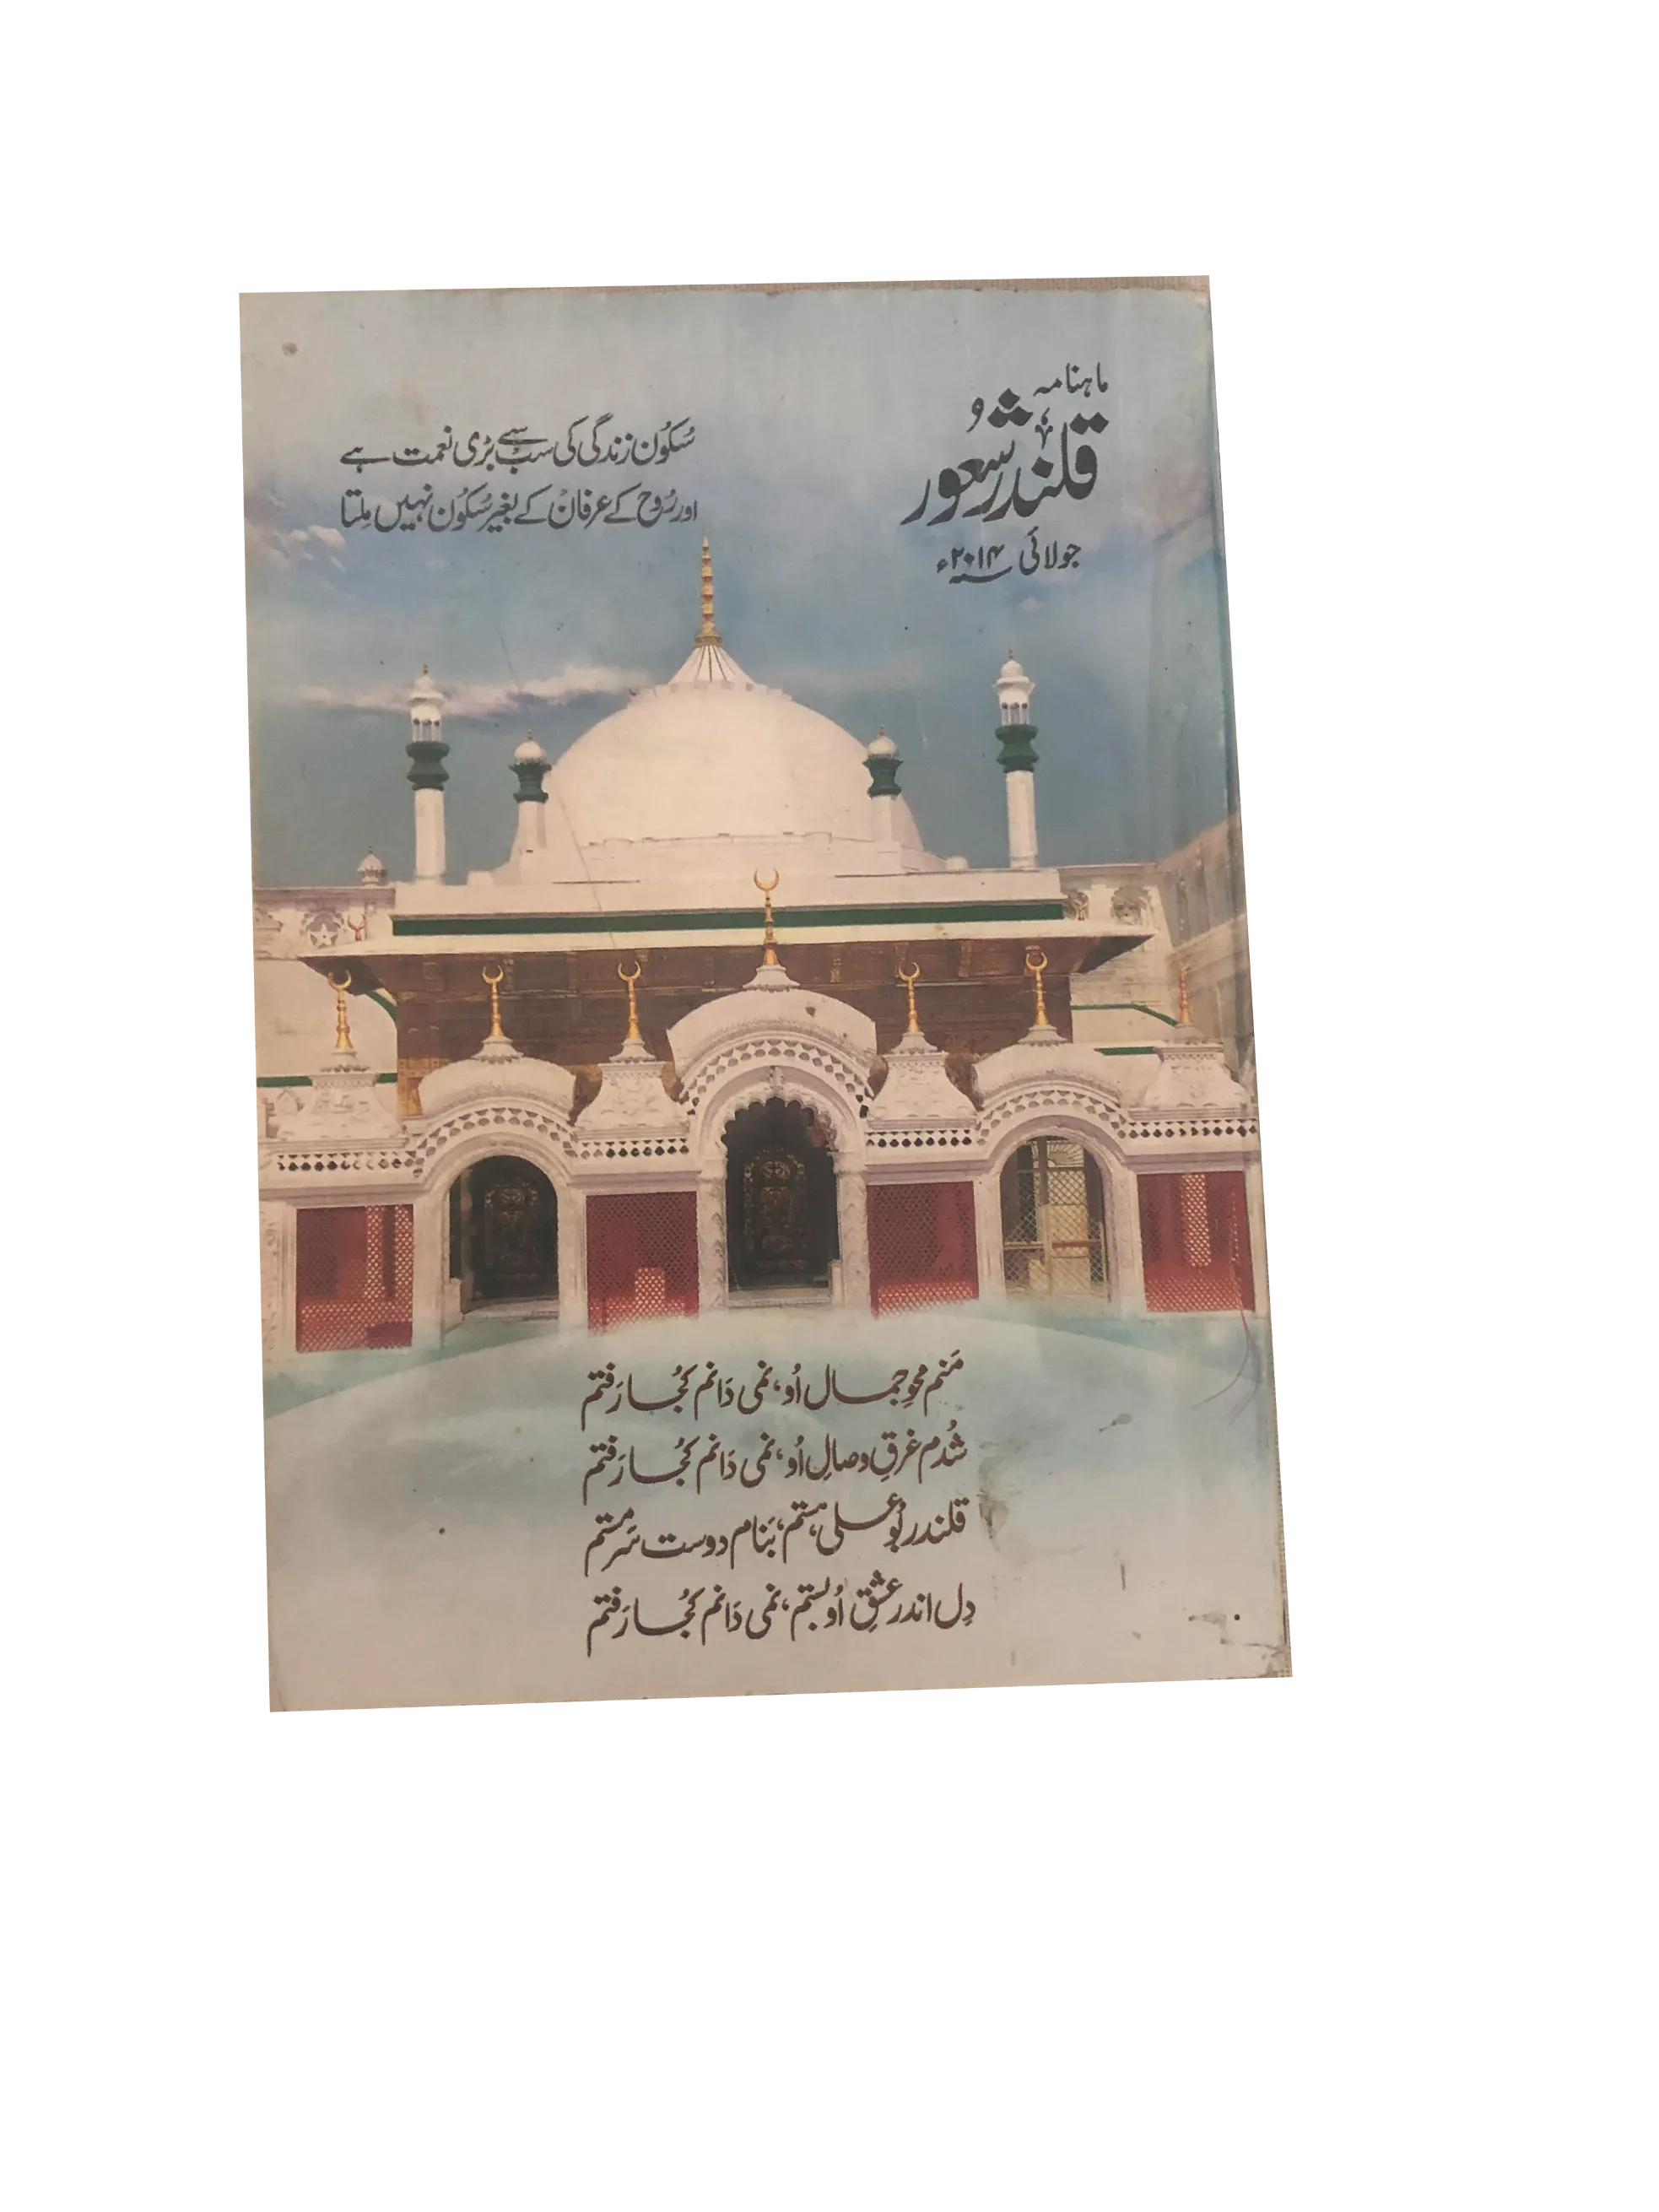 ماہنامہ
قلندر شعُور
جولائی ۲۰۱۴ء
سُکوُن زندگی کی سب سے بڑی نعمت ہے
اور رُوح کے عرفان کے بغیر سُکوُن نہیں مِلتا
مَنم محوِ جمال اُو، نمی دَانم کُجا رَفتم
شُدم غرقِ وصالِ اُو، نمی دَانم کُجا رَفتم
قلندر بُو علی ہستم، بَنام دوست سَرمستم
دِل اندر عشقِ اُو بستم، نمی دَانم کُجا رَفتم